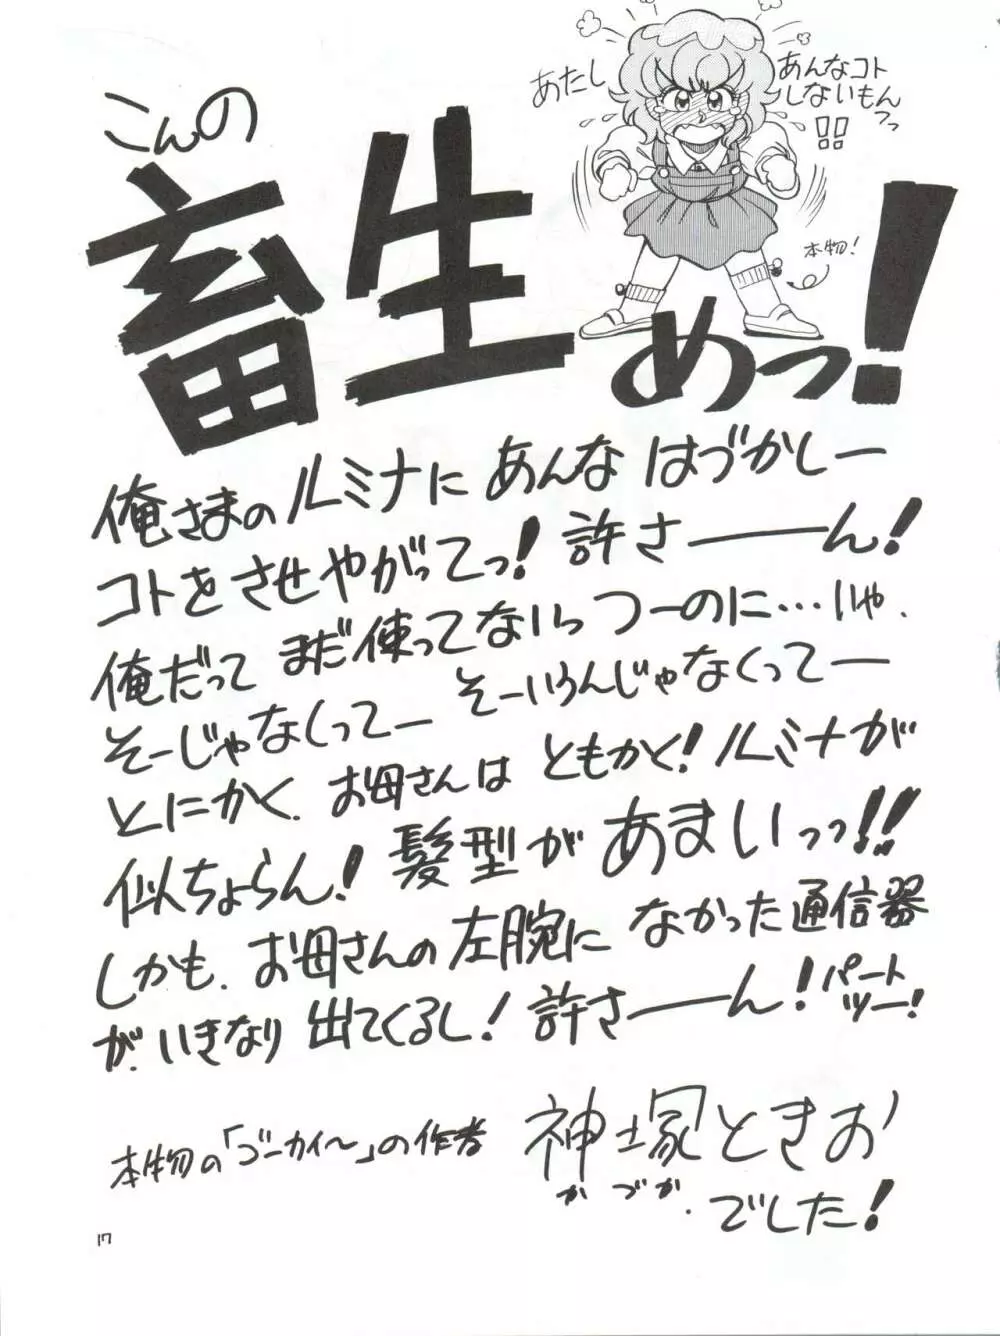 こんの
畜生
めっ!
あたし
あんなコト
しないもん
っっ
!!
本物!
俺さまのルミナにあんなはづかしー
コトをさせやがってっ!許さーーん!
俺だってまだ使ってないっつーのに…いや、
そーじゃなくってーそーいうんじゃなくってー
とにかく、お母さんはともかく!ルミナが
似ちょらん!髪型があまいっっ!!
しかも、お母さんの左腕になかった通信器
が、いきなり出てくるし!許さーーん!パート
ツー!
本物の「ゴーカイ〜」の作者
神塚ときお
かづか
でした!
17